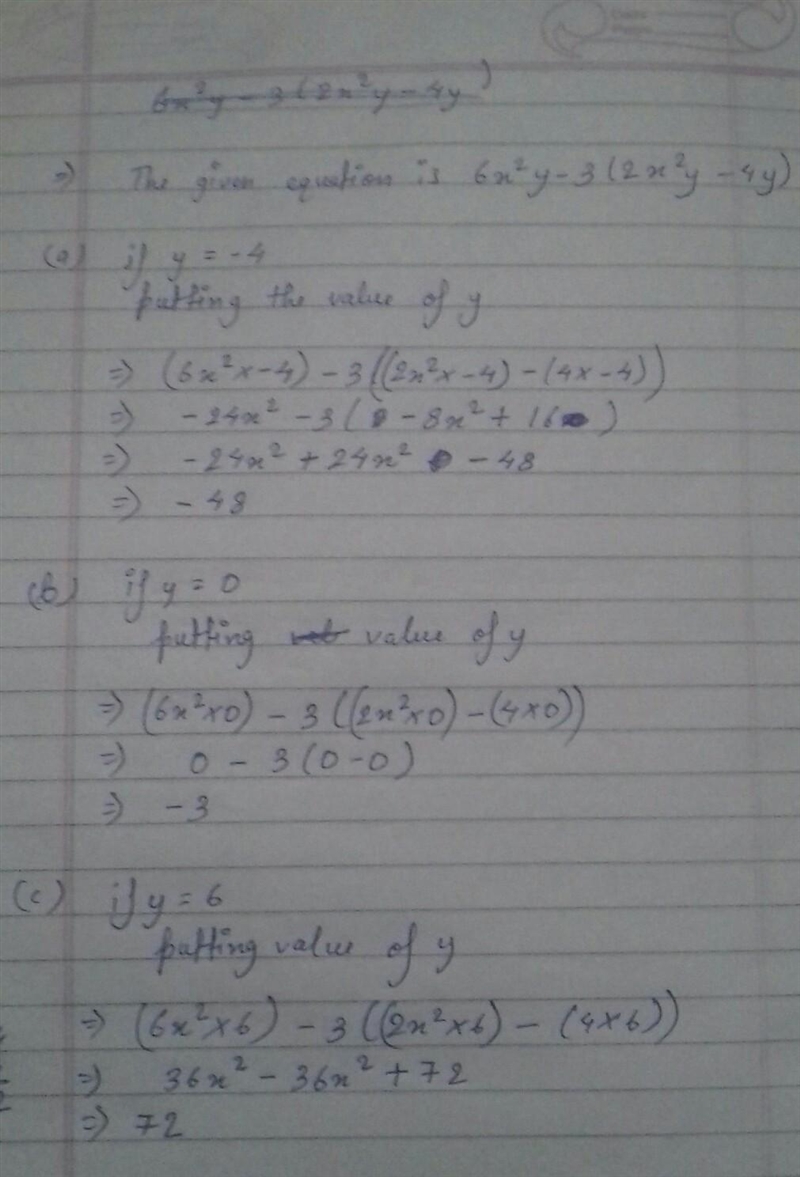 6x²y - 3(2x²y - 4y)
⇒ The given equation is 6x²y - 3(2x²y - 4y)
(a) if y = -4
putting the value of y
⇒ (6x²x-4) - 3((2x²x-4) - (4x-4))
⇒ -24x² - 3(-8x² + 16)
⇒ -24x² + 24x² - 48
⇒ -48
(b) if y = 0
putting value of y
⇒ (6x²x0) - 3((2x²x0) - (4x0))
⇒ 0 - 3(0-0)
⇒ -3
(c) if y = 6
putting value of y
⇒ (6x²x6) - 3((2x²x6) - (4x6))
⇒ 36x² - 36x² + 72
⇒ 72